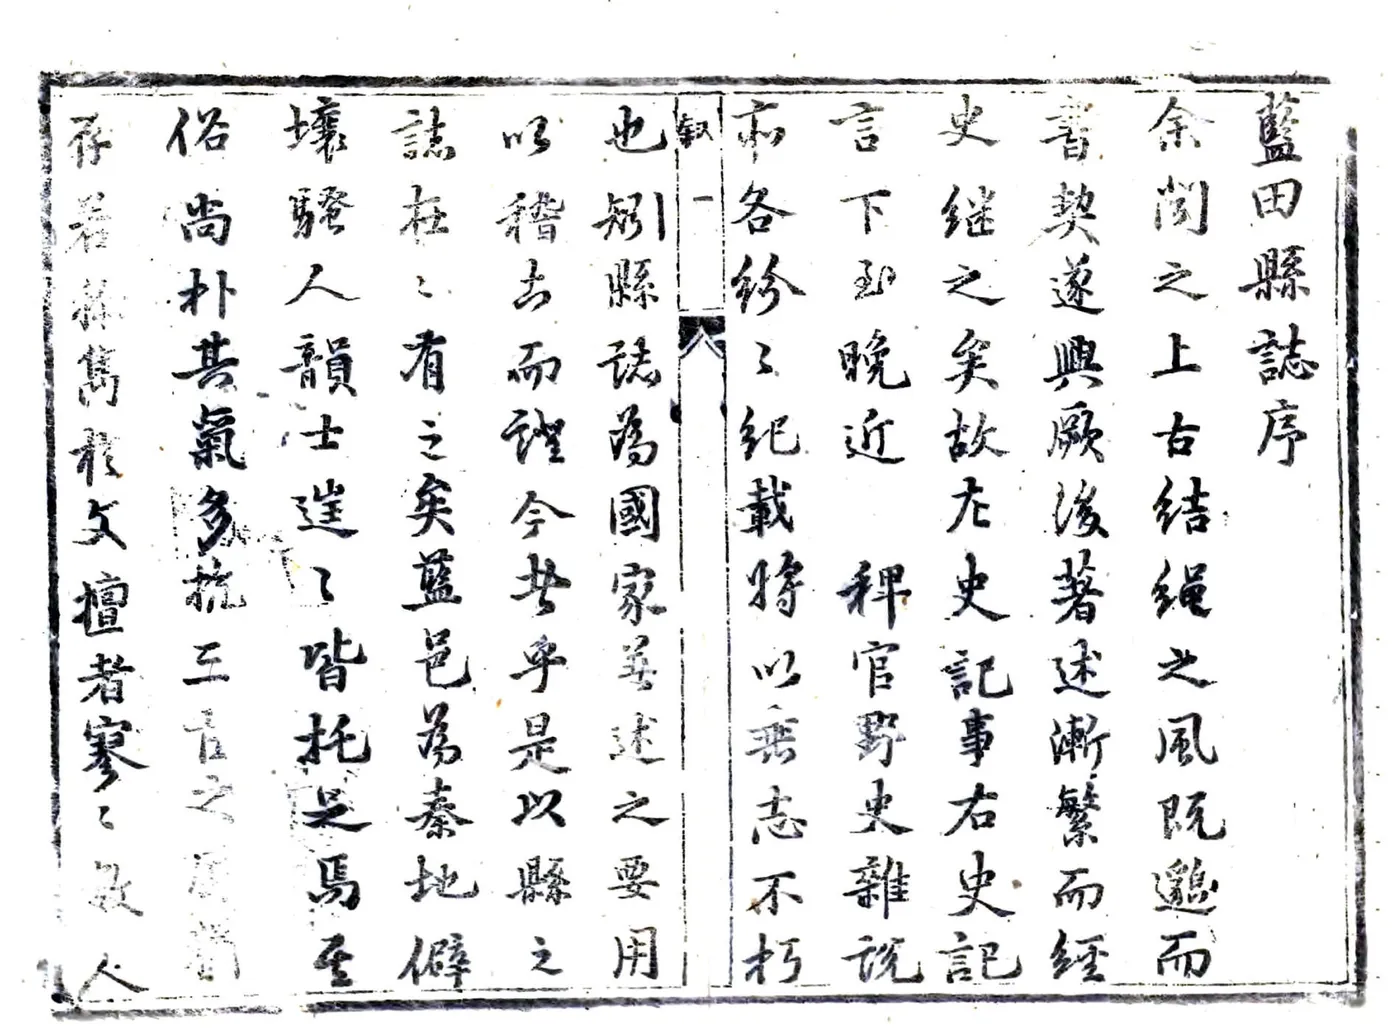 藍田縣誌序
余閱之上古結繩之風既邈而
書契遂興厥後著述漸繁而經
史継之矣故左史記事右史記
言下至晚近稗官野史雜說
亦各紛〻紀載將以垂志不朽
叙一
也矧縣誌為國家著述之要用
以稽古而證今者乎是以縣之
誌在〻有之矣藍邑為秦地僻
壤騷人韻士遑〻皆托足焉至
俗尚朴其氣多抗工古之
存若雋於文壇者寥〻數人